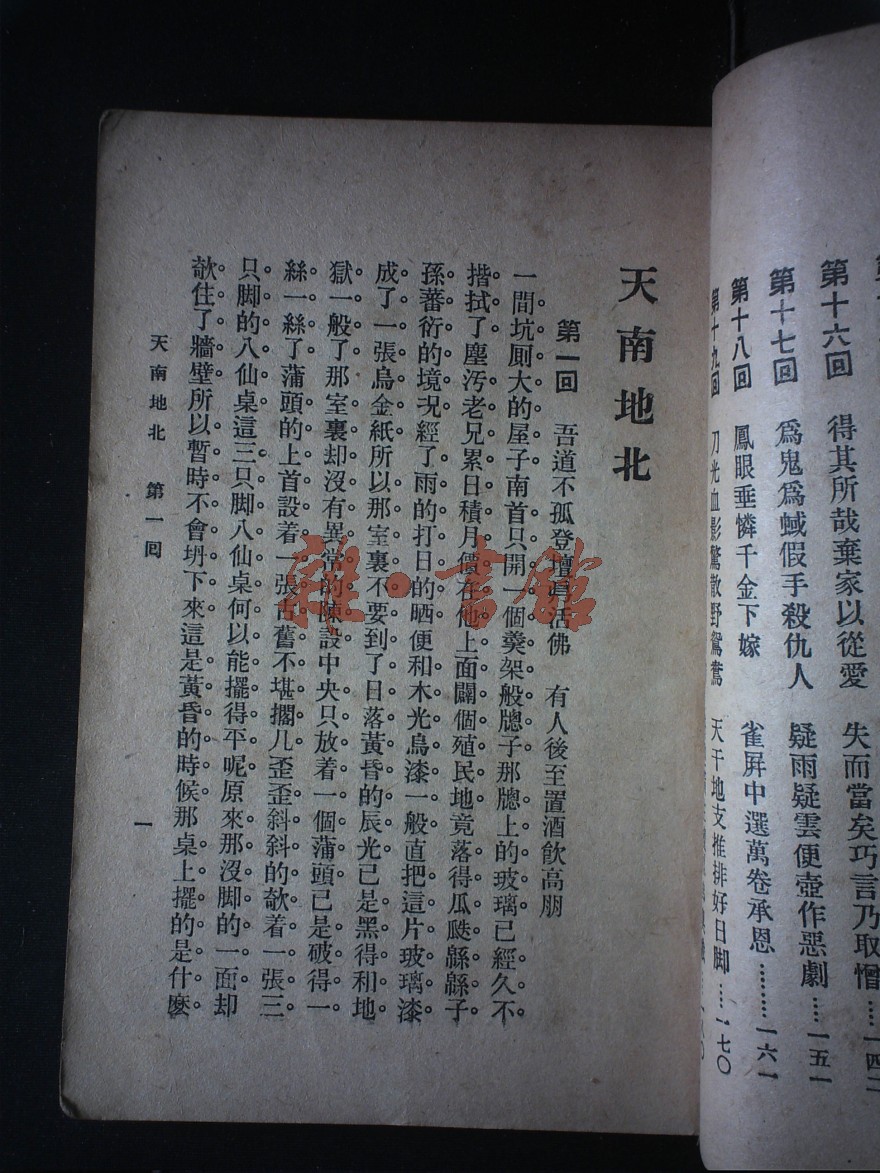 第十六回　得其所哉棄家以從愛　失而當矣巧言乃取憎……一四二
第十七回　爲鬼爲蜮假手殺仇人　疑雨疑雲便壺作惡劇……一五一
第十八回　鳳眼垂憐千金下嫁　雀屛中選萬卷承恩………一六一
第十九回　刀光血影驚散野鴛鴦　天干地支推排好日脚……一七〇
天南地北
第一回　吾道不孤登壇眞活佛　有人後至置酒飮高朋
一間坑厠大的屋子南首只開一個羹架般牕子那牕上的玻璃已經久不
揩拭了塵汚老兄累日積月儘在他上面闢個殖民地竟落得瓜瓞緜緜子
孫蕃衍的境况經了雨的打日的晒便和木光鳥漆一般直把這片玻璃漆
成了一張烏金紙所以那室裏不要到了日落黃昏的辰光已是黑得和地
獄一般了那室裏却沒有異常的陳設中央只放着一個蒲頭已是破得一
絲一絲了蒲頭的上首設着一張古舊不堪擱几歪歪斜斜的欹着一張三
只脚的八仙桌這三只脚八仙桌何以能擺得平呢原來那沒脚的一面却
欹住了牆壁所以暫時不會坍下來這是黃昏的時候那桌上擺的是什麽
天南地北　第一回　一
雜·書館